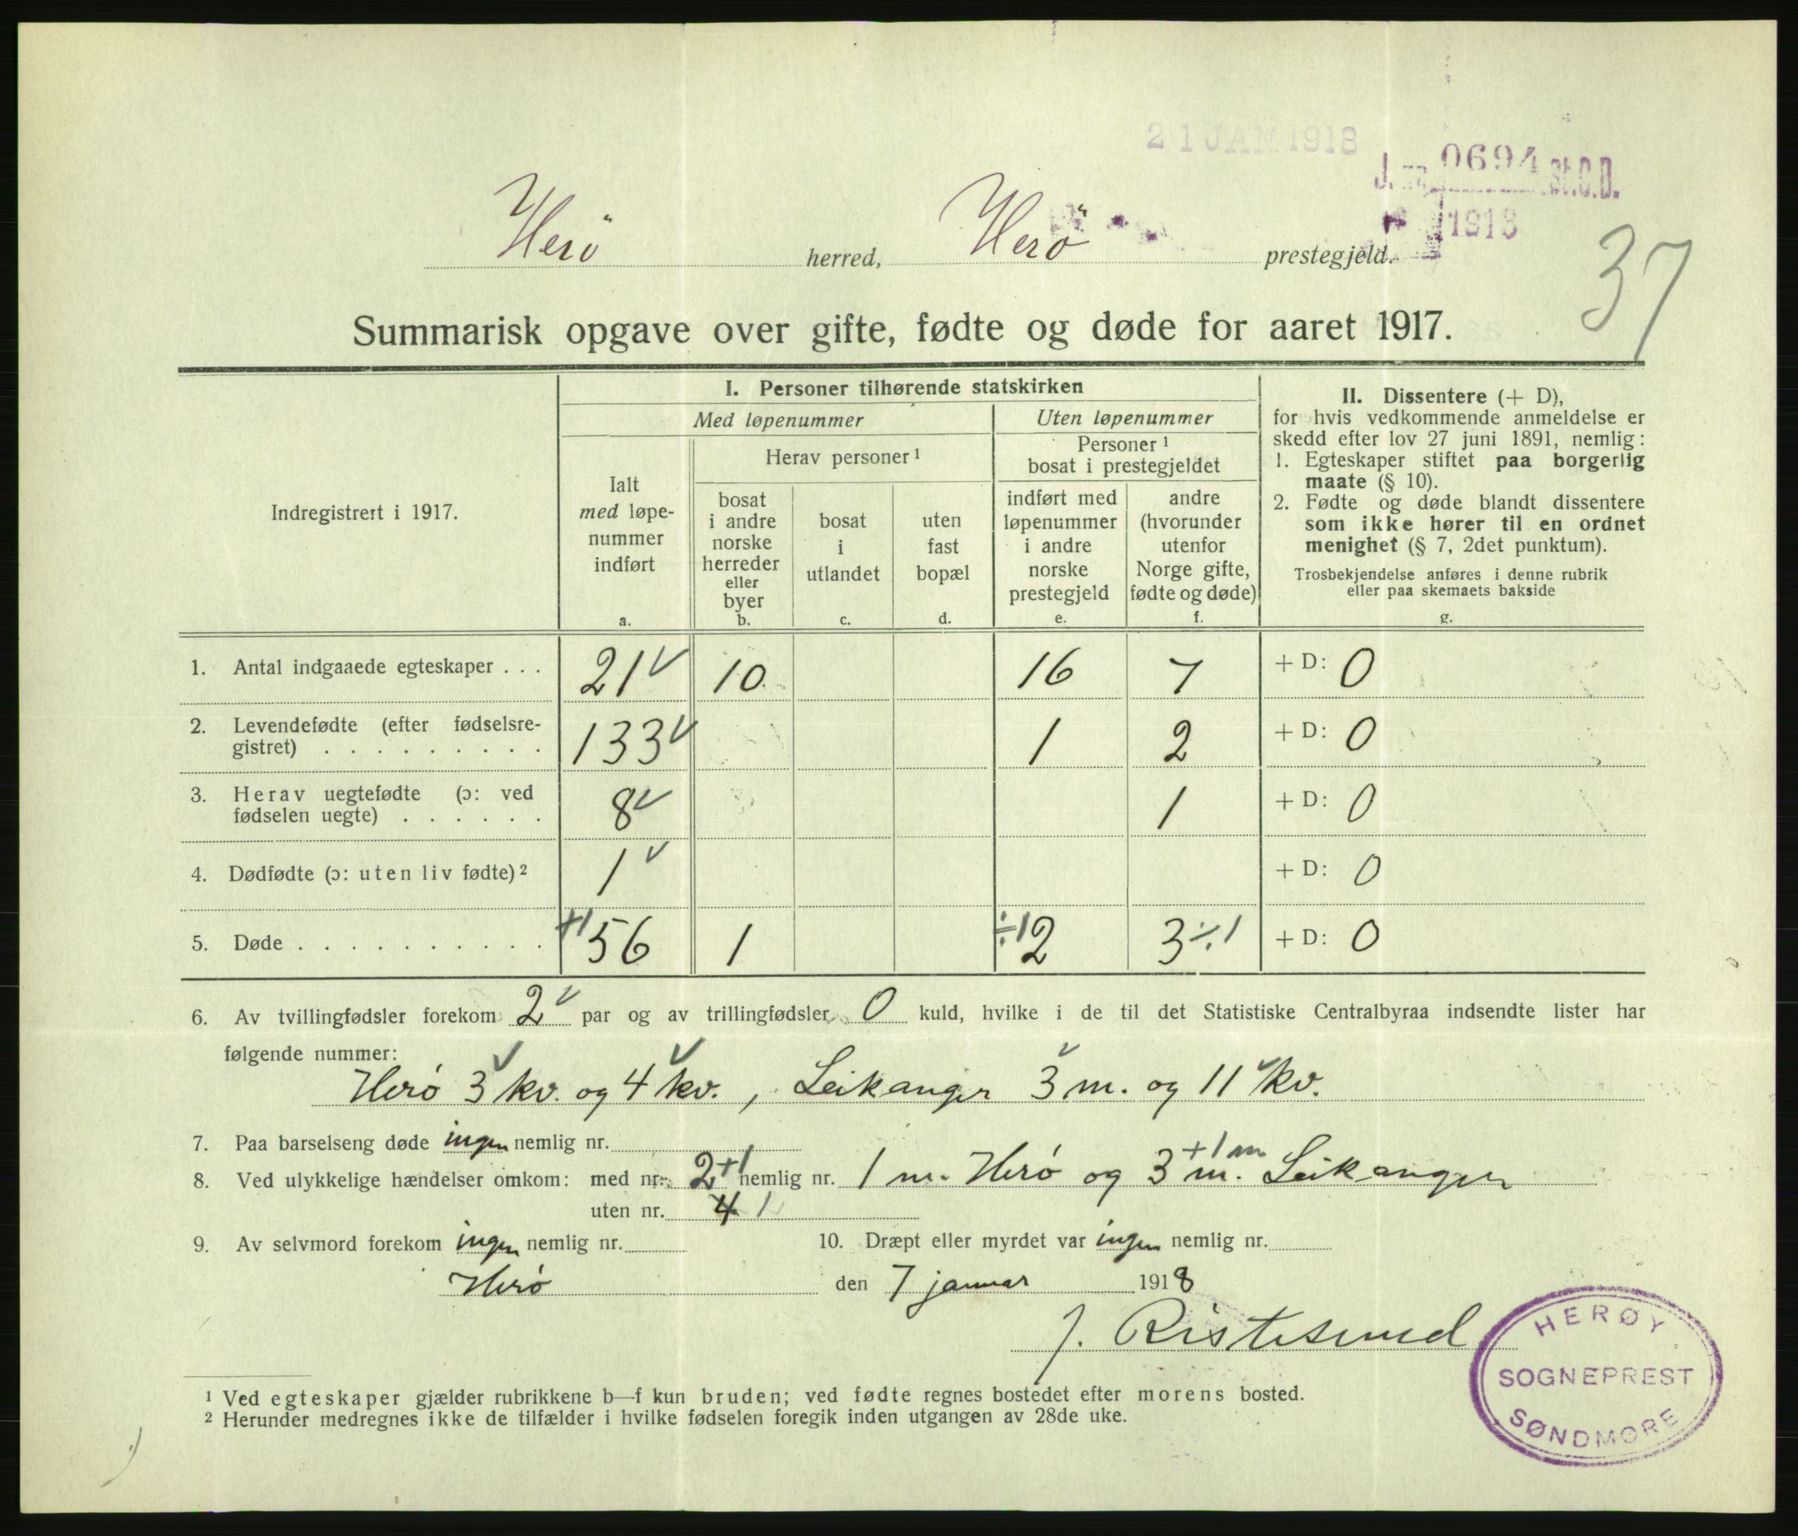 21 JAN 1918
J. no. 0694 St.C.B.
1918
37
Herö herred, Herö prestegjeld.
Summarisk opgave over gifte, fødte og døde for aaret 1917.
Indregistrert i 1917.
I. Personer tilhørende statskirken
Med løpenummer
Uten løpenummer
Ialt
med løpe-
nummer
indført
a.
Herav personer¹
bosat
i andre
norske
herreder
eller
byer
b.
bosat
i
utlandet
c.
uten
fast
bopæl
d.
Personer¹
bosat i prestegjeldet
indført med
løpenummer
i andre
norske
prestegjeld
e.
andre
(hvorunder
utenfor
Norge gifte,
fødte og døde)
f.
II. Dissentere (+ D),
for hvis vedkommende anmeldelse er
skedd efter lov 27 juni 1891, nemlig:
1. Egteskaper stiftet paa borgerlig
maate (§ 10).
2. Fødte og døde blandt dissentere
som ikke hører til en ordnet
menighet (§ 7, 2det punktum).
Trosbekjendelse anføres i denne rubrik
eller paa skemaets bakside
g.
1. Antal indgaaede egteskaper . . . 21 ✓ 10 16 7 + D: 0
2. Levendefødte (efter fødselsre-
gistret) . . . . . . . . . 133 ✓ 1 2 + D: 0
3. Herav uegtefødte (ɔ: ved
fødselen uegte) . . . . . . 8 ✓ 1 + D: 0
4. Dødfødte (ɔ: uten liv fødte)² 1 ✓ + D: 0
5. Døde . . . . . . . . . . +1 56 1 ÷1 2 3 ÷1 + D: 0
6. Av tvillingfødsler forekom 2 ✓ par og av trillingfødsler 0 kuld, hvilke i de til det Statistiske Centralbyraa indsendte lister har
følgende nummer:
Herø 3 ✓ kv. og 4 ✓ kv., Leikanger 3 ✓ m. og 11 ✓ kv.
7. Paa barselseng døde ingen nemlig nr.
8. Ved ulykkelige hændelser omkom: med nr. 2 +1 nemlig nr. 1 m. Herø og 3 +1 m m. Leikanger
uten nr. 4 1
9. Av selvmord forekom ingen nemlig nr. 10. Dræpt eller myrdet var ingen nemlig nr.
Herø den 7 januar 1918
J. Ristesund
HERØY
SOGNEPREST
SØNDMØRE
¹ Ved egteskaper gjælder rubrikkene b—f kun bruden; ved fødte regnes bostedet efter morens bosted.
² Herunder medregnes ikke de tilfælder i hvilke fødselen foregik inden utgangen av 28de uke.